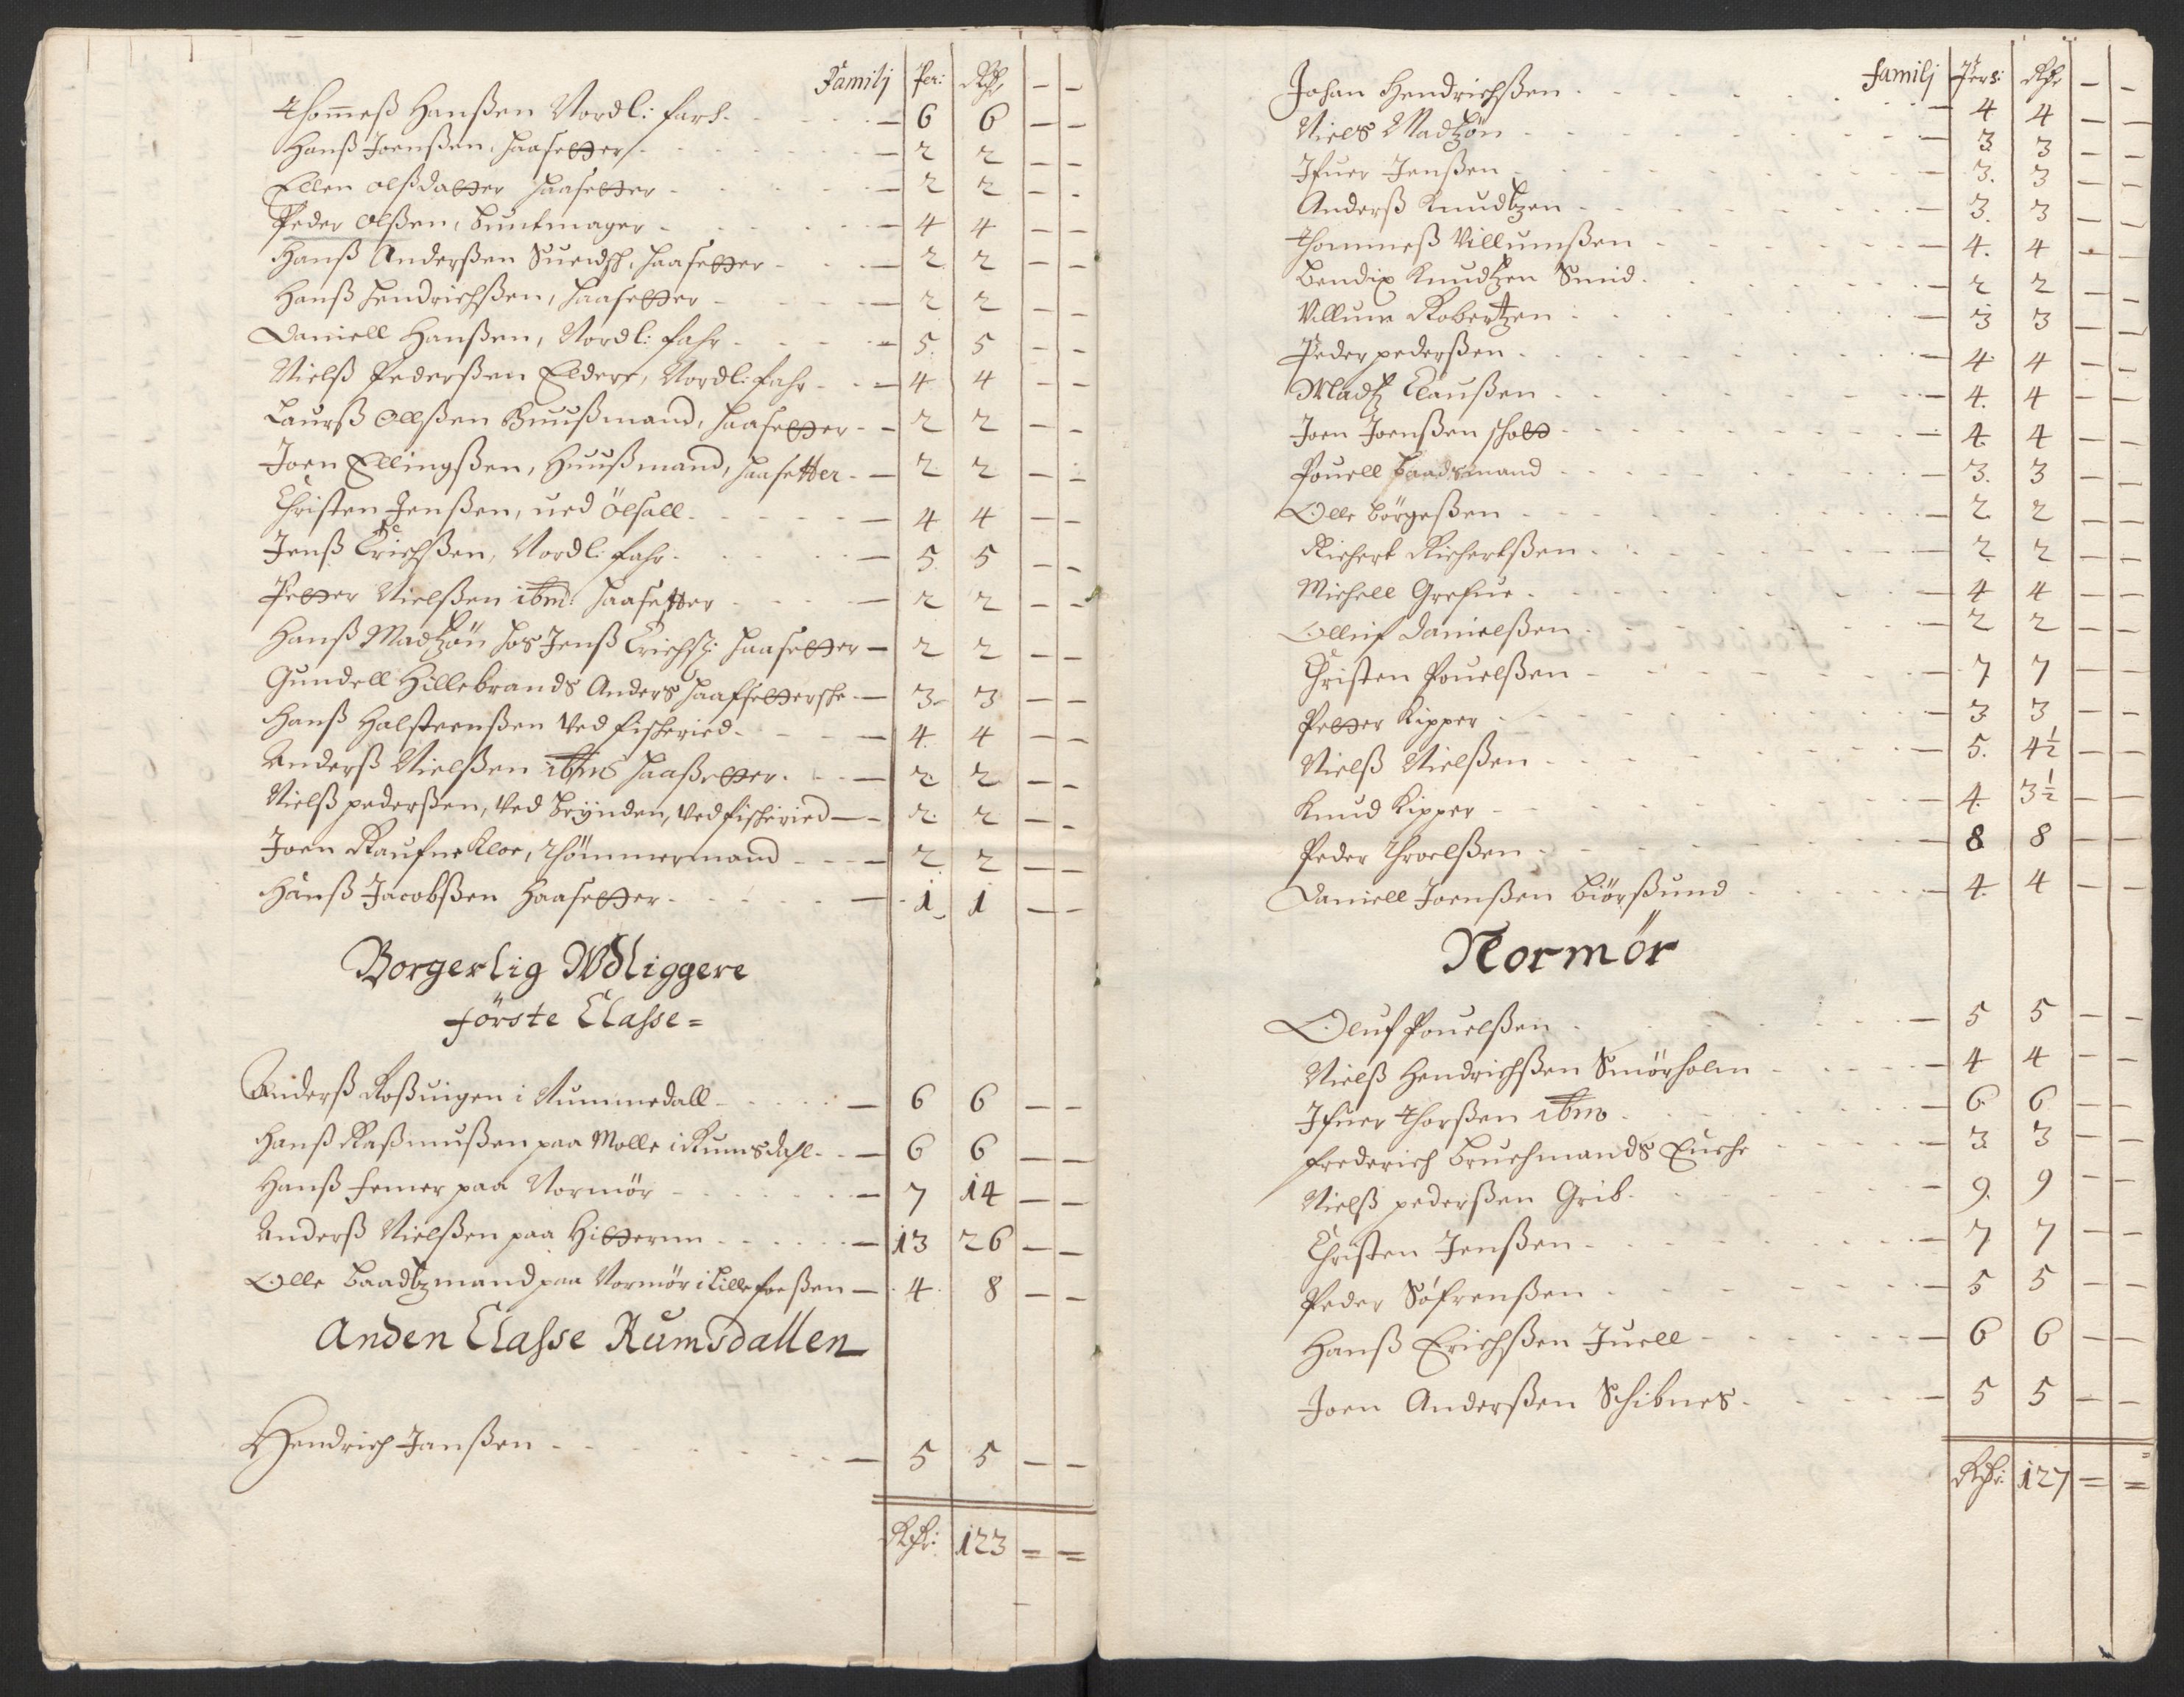 Familj Per: Rdr — —
Thommeß Hanßen Nordl: farh. — 6 6 — —
Hanß Joenßen, Haasetter — 2 2 — —
Ellen Olßdatter Haasetter — 2 2 — -
Peder Olßen, Buntmager — 4 4 — —
Hanß Anderßen Suendsk, Haasetter — 2. 2 — —
Hanß Hendrichßen, Haasetter — 2 2 — —
Daniell Hanßen, Nordl: fahr — 5. 5 — —
Nielß Pederßen Eldere, Nordl: fahr — 4 4 — —
Laurß Ollßen Huußmand, Haasetter — 2 2 — —
Joen Ellingßen, Huußmand, Haasetter — 2 2 — —
Christen Jenßen, ued Ölhall — 4 4 — —
Jenß Erichßen, Nordl. fahr — 5. 5 — —
Petter Nielßen ibm: Haasetter — 2 2 — —
Hanß Madtzön hos Jenß Erichß: Haasetter — 2 2 — —
Gundell Hillebrands Anders Haafsettershe — 3 3 — —
Hanß Halsteenßen Ved fisheried — 4. 4 — —
Anderß Nielßen ibm Haaßetter — 2. 2 — —
Nielß pederßen, Ved Brynden, Ved fisheried — 2. 2 — —
Joen Raufnekloe, Thömmermand — 2 2 — —
Hanß Jacobßen Haasetter — 1 1 — —
Borgerlig Wdliggere
förste Classe =
Anderß Roßuigen i Nummedall — 6 6 — —
Hanß Raßmußen paa Molle i Rumsdahl — 6 6 — —
Hanß femer paa Normör — 7 14 — —
Anderß Nielßen paa Hitternn — 13 26 — —
Olle Baadtzmand paa Normör i Lille foeßen — 4. 8 — —
Anden Classe Rumsdallen
Hendrich Janßen — 5 5 — —
Rdr: 123 = =
familj Pers: Rdr — —
Johan Hendrichßen — 4 4 — —
Niels Madtzön — 3 3 — —
Ifuer Jenßen — 3. 3 — —
Anderß Knudtzen — 3. 3 — —
Thommeß Villumßen — 4. 4 — —
Bendix Knudtzen Smid — 2 2 — —
Villum Robertzen — 3 3 — —
Peder pederßen — 4 4 — —
Madtz Claußen — 4. 4 — —
Joen Joenßen skott — 4. 4 — —
Pouell Baadsmand — 3. 3 — —
Olle Börgeßen — 2 2 — —
Richert Richertßen — 2 2 — —
Michell Grefue — 4 4 — —
Olluf Danielßen — 2 2 — —
Christen Pouelßen — 7 7 — —
Petter Kipper — 3 3 — —
Nielß Nielßen — 5. 4½ — —
Knud Kipper — 4. 3½ — —
Peder Throelßen — 8 8 — —
Daniell Joenßen Biörßund — 4. 4 — —
Normör
Oluf Pouelßen — 5 5 — —
Nielß Hendrichßen Smörholm — 4 4 — —
Ifuer Thorßen ibm — 6 6 — —
frederich Bruchmands Enche — 3 3 — —
Nielß pederßen Grib — 9. 9 — —
Christen Jenßen — 7 7 — —
Peder Söfrenßen — 5 5 — —
Hanß Erichßen Juell — 6 6 — —
Joen Anderßen Schibnes — 5 5 — —
Rdr: 127 = =